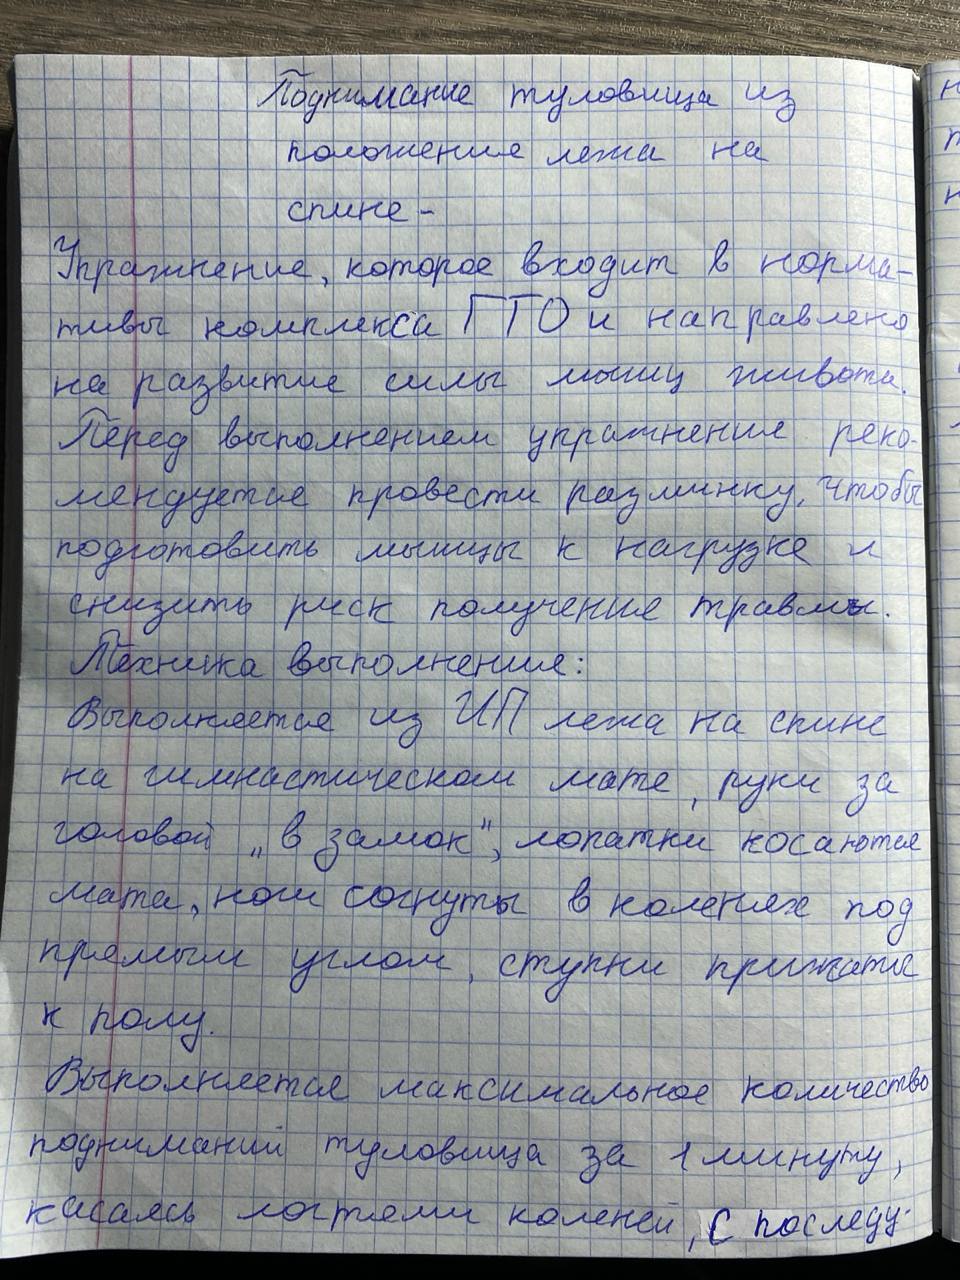 Поднимание туловища из
положение лежа на
спине -
Упражнение, которое входит в норма-
тивы комплекса ГТО и направлено
на развитие силы мышц живота.
Перед выполнением упражнение реко-
мендуется провести разминку, чтобы
подготовить мышцы к нагрузке и
снизить риск получение травмы.
Техника выполнение:
Выполняется из ИП лежа на спине
на гимнастическом мате, руки за
головой „в замок", лопатки косаются
мата, ноги согнуты в коленях под
прямым углом, ступни прижаты
к полу.
Выполняется максимальное количество
подниманий туловища за 1 минуту,
касаясь локтями коленей, с последу-